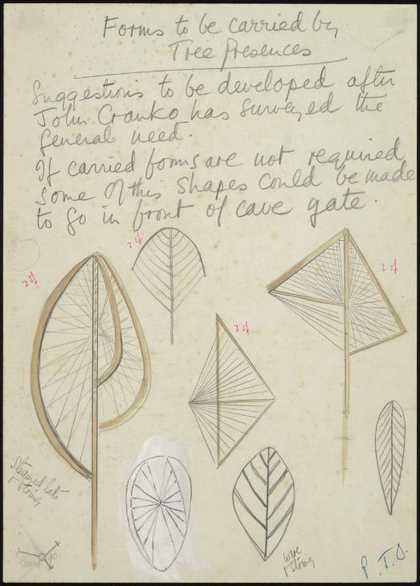 Forms to be carried by
Tree Presences
Suggestions to be developed after
John Cranko has surveyed the
general need.
If carried forms are not required
some of this shapes could be made
to go in front of cave gate.
2 of
2 of
2 of
2 of
& string
wire
& string
P.T.O.